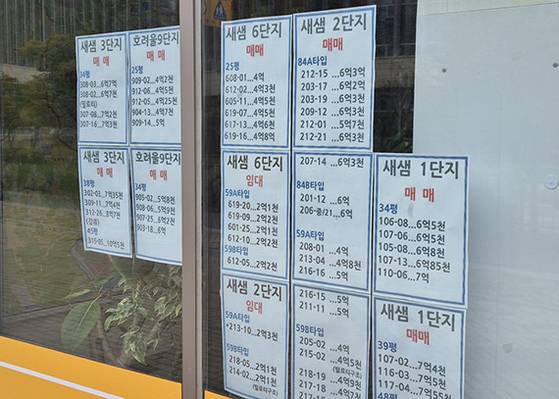 새샘 3단지
매 매
34평
308-03...6억7억
308-02...6억7천
(필로티)
307-08...7억2천
307-16...7억3천
호려울9단지
매매
25평
909-02...4억2천
912-06...4억5천
912-05...4억25천
904-13...4억7천
909-14...5억
새샘 3단지
매 매
38평
302-03...7억35천
309-11...7억4천
312-26...8억7천
45평
315-05...10억5천
호려울9단지
매매
34평
905-02...5억8천
908-06...5억9천
907-25...6억2천
903-18...6억
새샘 6단지
매매
25평
608-01...4억
612-02...4억3천
605-11...4억5천
619-07...4억5천
617-13...4억6천
619-16...4억8천
새샘 6단지
임대
59A타입
619-20...2억1천
619-09...2억2천
601-25...2억3천
612-10...2억2천
59B타입
612-05...2억2천
새샘 2단지
임대
59A타입
+213-10...2억3천
59B타입
218-05...2억1천
214-02...2억1천
새샘 2단지
매매
84A타입
212-15...6억3천
203-17...6억2천
203-19...6억3천
209-12...6억3천
212-01...5억7천
212-21...6억3천
207-14...6억3천
84B타입
201-12...6억
206-중/21...6억
59A타입
208-01...4억
213-04...4억8천
216-16...5억
216-15...5억
211-11...5억
59B타입
205-02...4억
215-02...4억5천
(필로티구조)
218-19...4억9천
217-18...4억
새샘 1단지
매 매
34평
106-08...6억5천
107-06...6억5천
105-08...6억8천
107-13...6억85천
110-06...7억
새샘 1단지
매매
39평
107-02...7억4천
116-03...7억5천
117-04...7억55천
48평